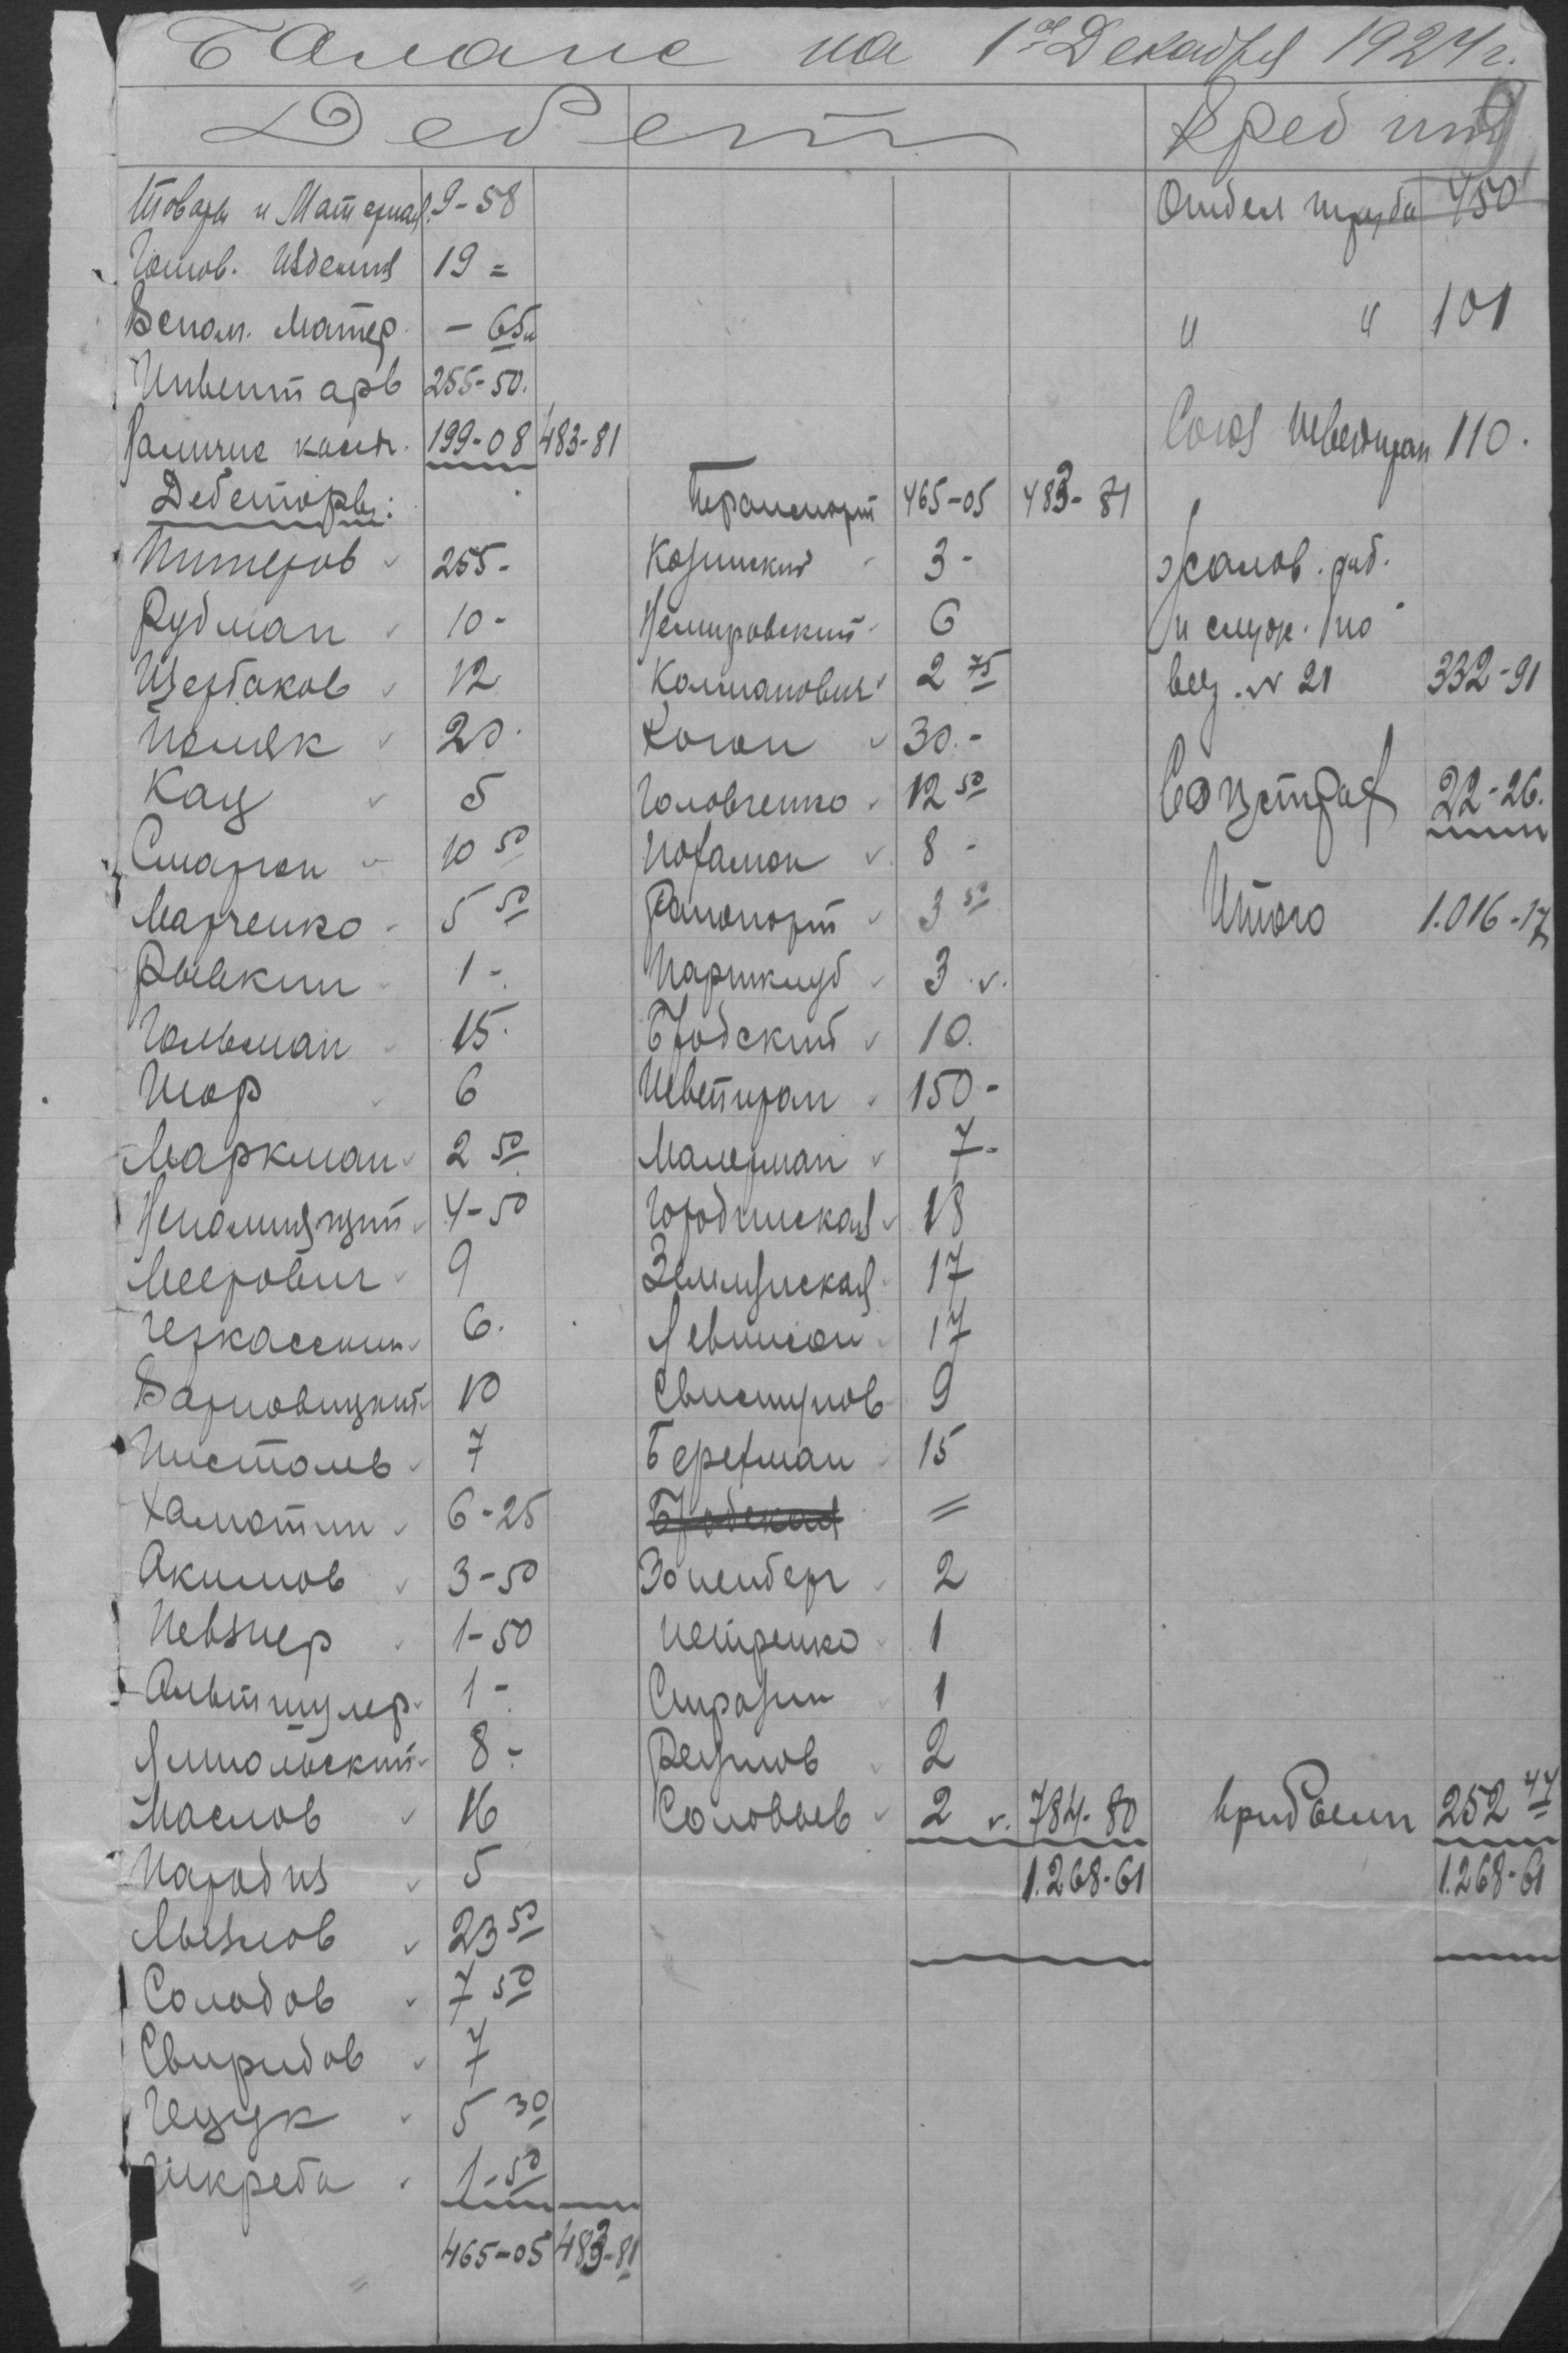 Баланс на 1ое Декабря 1924 г.
Дебет
Товары и Материал. 9-58
Готов. Изделия 19 =
Вспом. Матер. - 65
Инвентарь 255-50.
Наличие кассы. 199-08 483-81
Дебеторы:
Питеров 255-
Рудман 10-
Щербаков 12
Поляк 20.
Кац 5
Смаргон 10 50
Марченко 5 50
Рывкин 1-
Гольман 15.
Шор 6
Маркман 2 50
Непомнящий 4-50
Меерович 9
Черкасский 6.
Варновицкий 10
Пистоль 7
Хамотин 6-25
Акимов 3-50
Певзнер 1-50
Альтшулер 1-
Ямпольский 8-
Маслов 16
Народиз 5
Мызлов 23 50
Солодов 7 50
Свиридов 7
Гецук 5 30
Шкреба 1-50
465-05 483-81
Транспорт 465-05 483-81
Козинский 3-
Немировский 6
Калманович 2 75
Коган 30.-
Головченко 12 50
8-
Рапопорт 3 50
Партклуб 3
Бродский 10.
Шветпром 150-
Малерман 7-
Городинская 18
17
Левинсон 17
Свистунов 9
Берегман 15
Бродская =
Эоненберг 2
Петренко 1
Стразин 1
Резнов 2
Соловьев 2 784-80
1.268-61
Кредит
9
Отдел труда 450
" " 101
Союз Шветпром 110.
Жалов. раб.
и служ. по
вед. № 21 332-91
Соцстрах 22-26.
Итого 1.016-17
прибыли 252 44
1.268-61